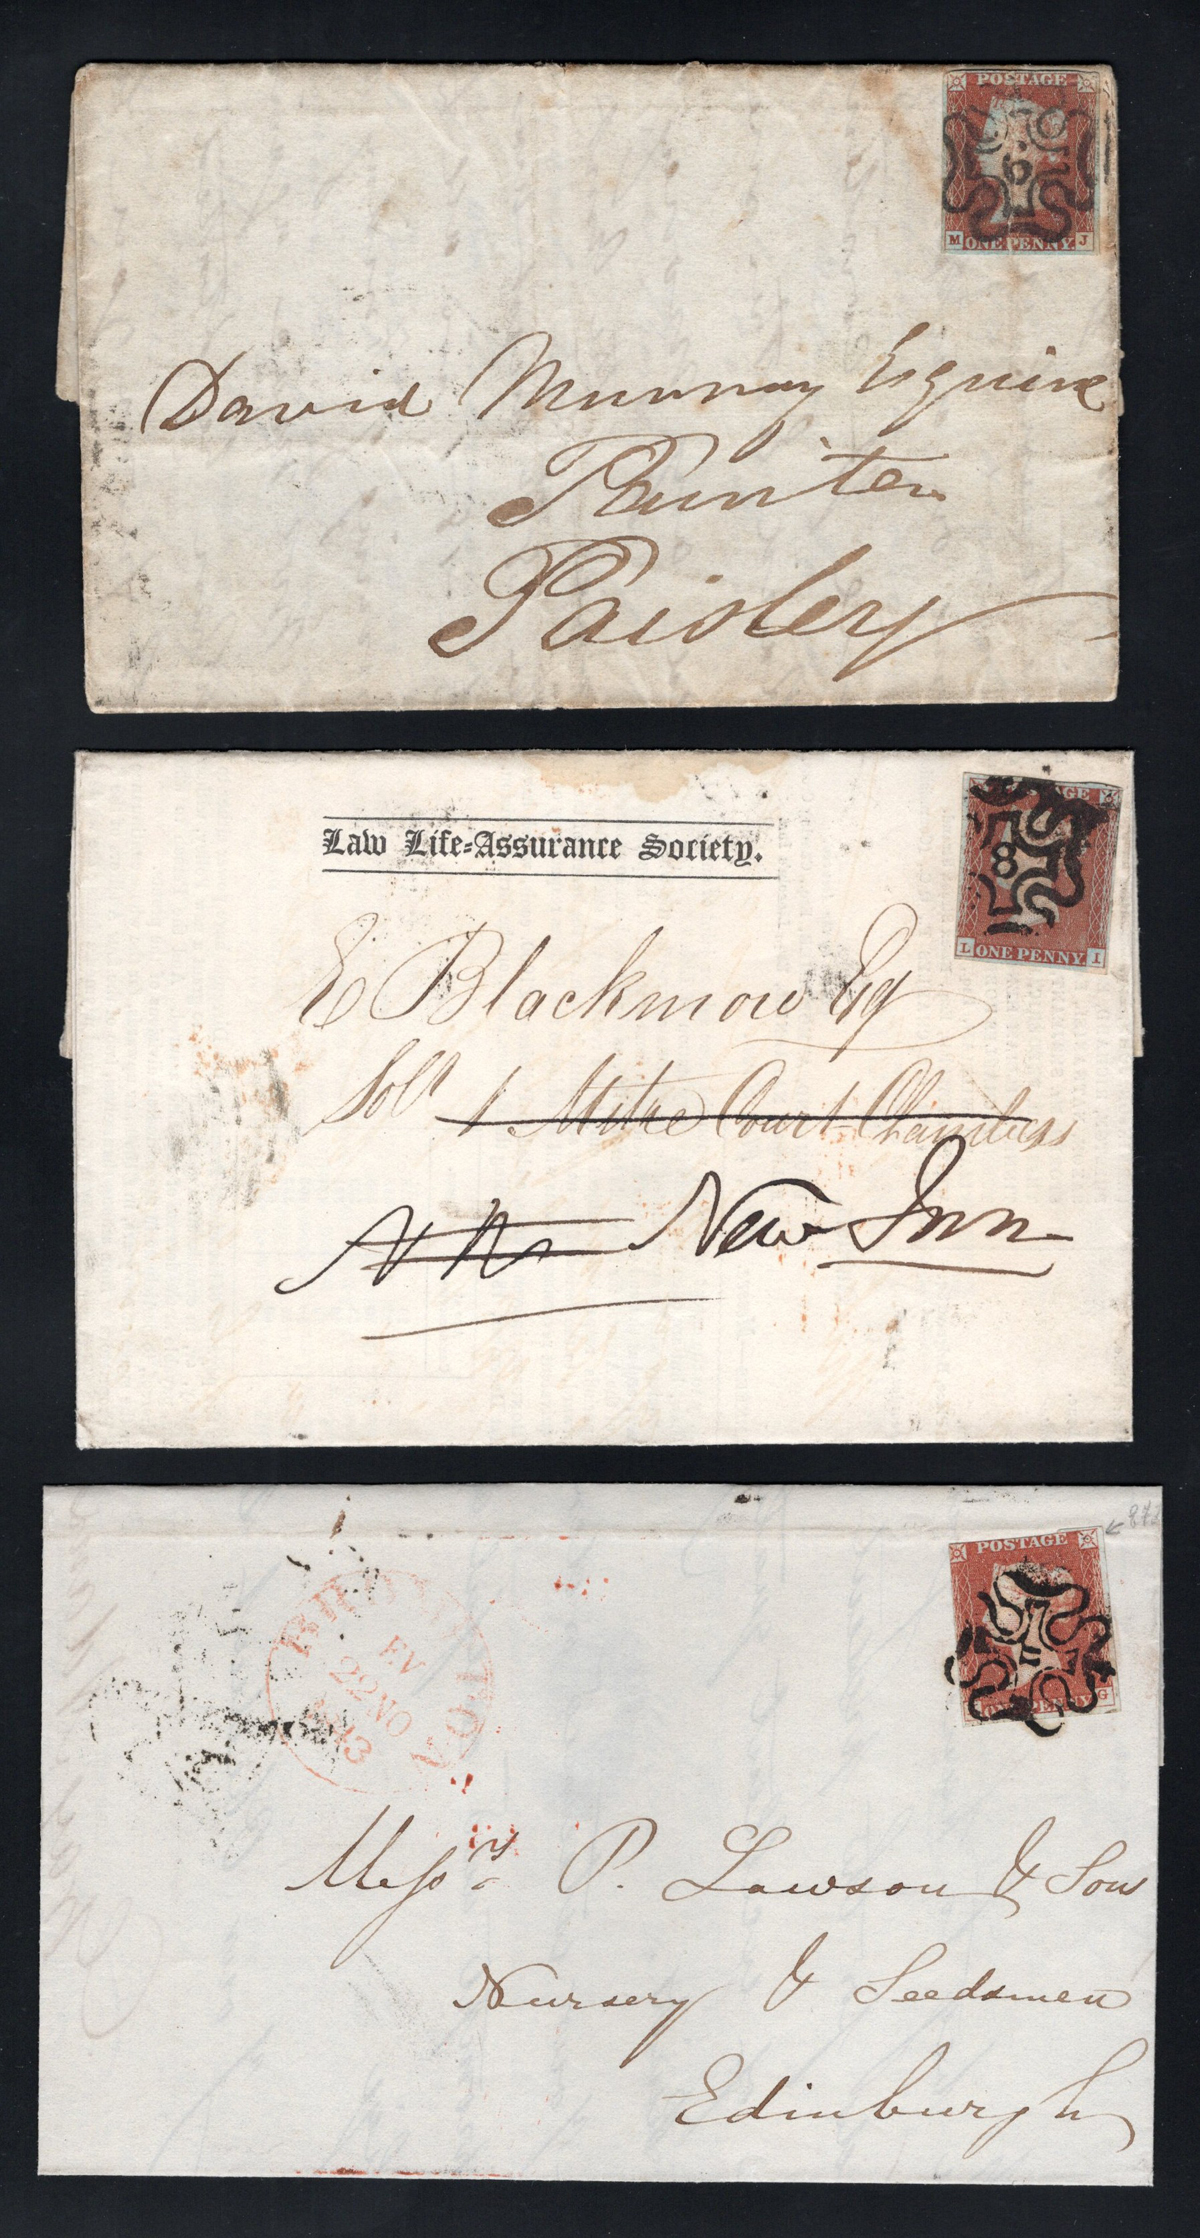 POSTAGE
6
M ONE PENNY. J
David Murray Esquire
Painter
Paisley
AGE
8
L ONE PENNY. I
Law Life-Assurance Society.
E Blackmow Esq
Solr 1 Mitre Court Chambers
New Inn
872
POSTAGE
ONE PENNY G
EV
22 NO
Messrs P. Lawson & Sons
Nursery & Seedsmen
Edinburgh